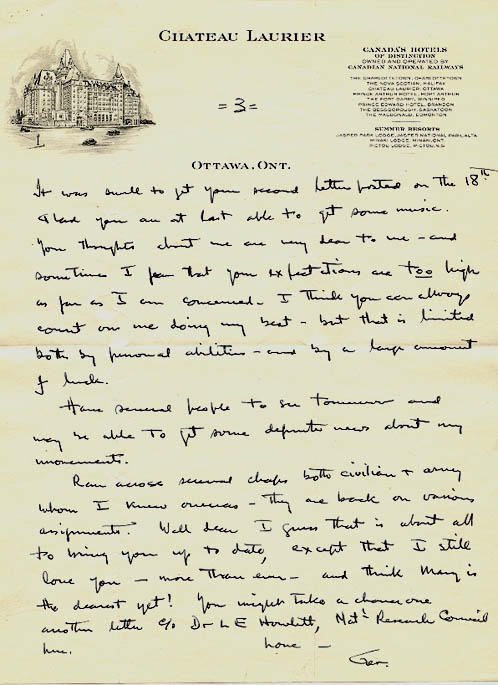 CHATEAU LAURIER
CANADA'S HOTELS
OF DISTINCTION
OWNED AND OPERATED BY
CANADIAN NATIONAL RAILWAYS
THE CHARLOTTETOWN, CHARLOTTETOWN
THE NOVA SCOTIAN, HALIFAX
CHATEAU LAURIER, OTTAWA
PRINCE ARTHUR HOTEL, PORT ARTHUR
THE FORT GARRY, WINNIPEG
PRINCE EDWARD HOTEL, BRANDON
THE BESSBOROUGH, SASKATOON
THE MACDONALD, EDMONTON
SUMMER RESORTS
JASPER PARK LODGE, JASPER NATIONAL PARK, ALTA.
MINAKI LODGE, MINAKI, ONT.
PICTOU LODGE, PICTOU, N.S.
=3=
OTTAWA, ONT.
It was swell to get your second letter posted on the 18th
Glad you are at last able to get some music.
Your thoughts about me are very dear to me - and
sometimes I fear that your expectations are too high
as far as I am concerned - I think you can always
count on me doing my best - but that is limited
both by personal abilities - and by a large amount
of luck.
Have several people to see tomorrow and
may be able to get some definite news about my
movements.
Ran across several chaps both civilian + army
whom I knew overseas - They are back on various
assignments. Well dear I guess that is about all
to bring you up to date, except that I still
love you - more than ever - and think Mary is
the dearest yet! You might take a chance on
another letter c/o Dr L E Howlett, Nat'l Research Council
here. Love -